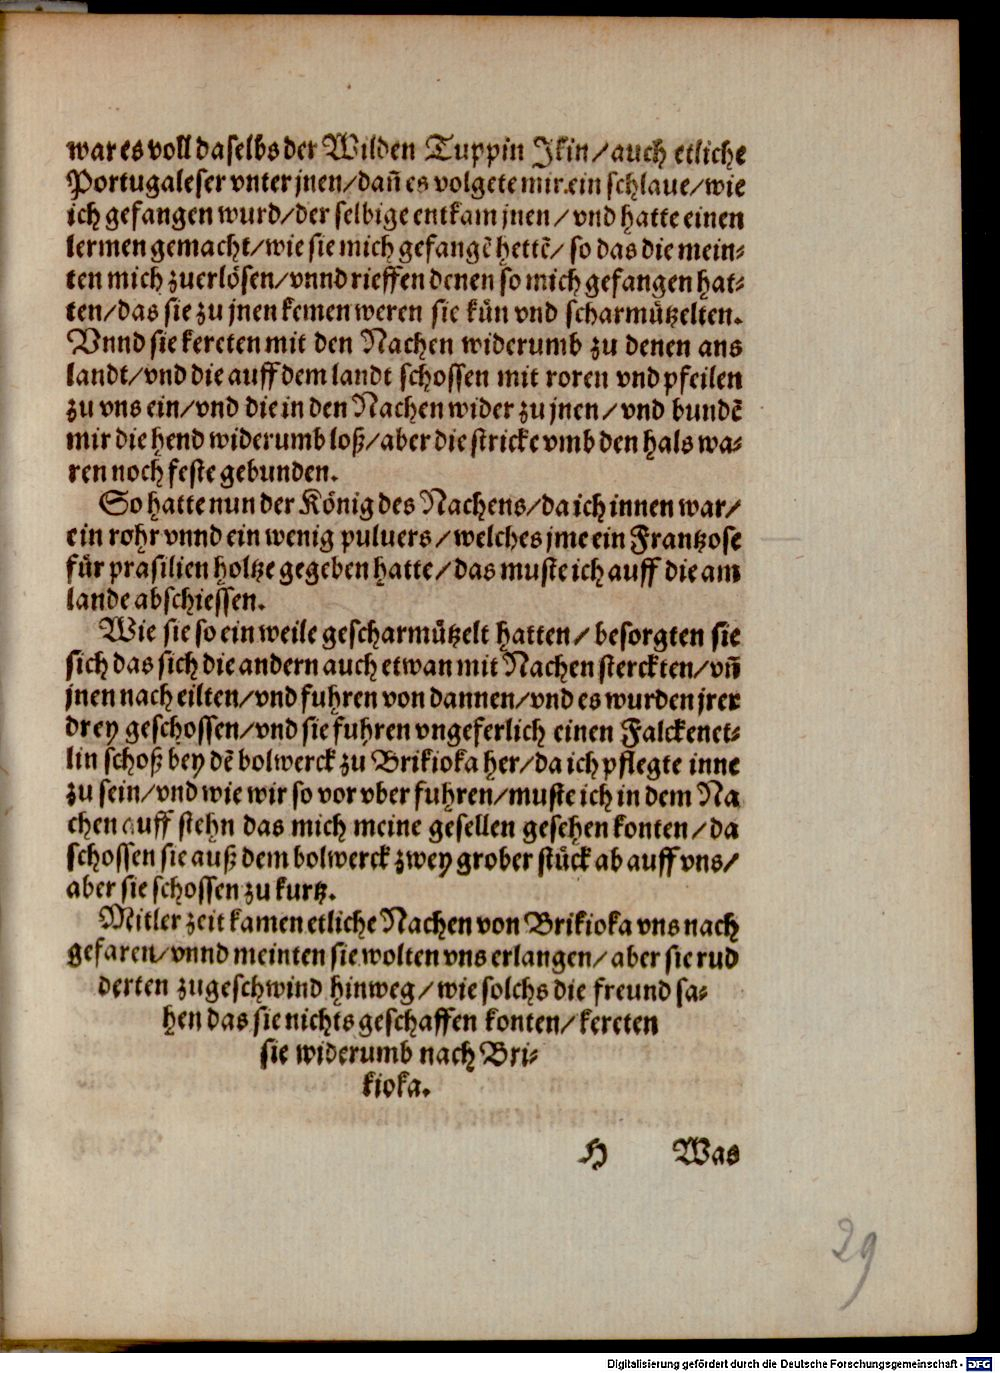 war es voll daselbs der Wilden Tuppin Jkin/ auch etliche
Portugaleser vnter jnen/ dañ es volgete mir ein schlaue/ wie
ich gefangen wurd/ der selbige entkam jnen/ vnd hatte einen
lermen gemacht/ wie sie mich gefangẽ hettẽ/ so das die mein-
ten mich zuerlösen/ vnnd rieffen denen so mich gefangen hat-
ten/ das sie zu jnen kemen weren sie kün vnd scharmützelten.
Vnnd sie kereten mit den Nachen widerumb zu denen ans
landt/ vnd die auff dem landt schossen mit roren vnd pfeilen
zu vns ein/ vnd die in den Nachen wider zu jnen/ vnd bundẽ
mir die hend widerumb loß/ aber die stricke vmb den hals wa-
ren noch feste gebunden.
So hatte nun der König des Nachens/ da ich innen war/
ein rohr vnnd ein wenig puluers/ welches jme ein Frantzose
für prasilien holtze gegeben hatte/ das muste ich auff die am
lande abschiessen.
Wie sie so ein weile gescharmützelt hatten/ besorgten sie
sich das sich die andern auch etwan mit Nachen sterckten/ vñ
jnen nach eilten/ vnd fuhren von dannen/ vnd es wurden jrer
drey geschossen/ vnd sie fuhren vngeferlich einen Falckenet-
lin schoß bey dẽ bolwerck zu Brikioka her/ da ich pflegte inne
zu sein/ vnd wie wir so vor vber fuhren/ muste ich in dem Na
chen auff stehn das mich meine gesellen gesehen konten/ da
schossen sie auß dem bolwerck zwey grober stück ab auff vns/
aber sie schossen zu kurtz.
Mitler zeit kamen etliche Nachen von Brikioka vns nach
gefaren/ vnnd meinten sie wolten vns erlangen/ aber sie rud
derten zugeschwind hinweg/ wie solchs die freund sa-
hen das sie nichts geschaffen konten/ kereten
sie widerumb nach Bri-
kioka.
H Was
29
Digitalisierung gefördert durch die Deutsche Forschungsgemeinschaft - DFG